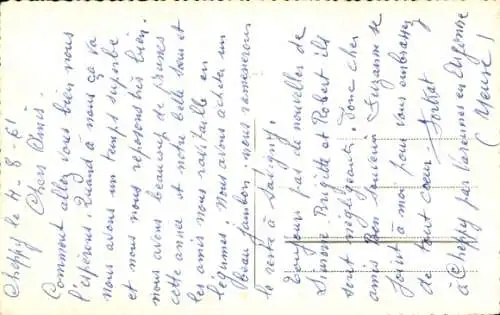 Cheppy le 4-8-61
Chers Amis.
Comment allez vous bien nous
l'espérons. Quand à nous ça va
nous avons un temps superbe
et nous nous reposons très bien.
nous avons beaucoup de prunes
cette année et notre belle sœur et
les amis nous ravitaille en
légumes. Nous avons acheter un
beau jambon nous ramènerons
le reste à Savigny.
Toujours pas de nouvelles de
Simone Brigitte et Robert ils
sont négligeants. Donc cher
amis Bon souvenir Suzanne se
joint à moi pour vous embrasser
de tout cœur.
à Cheppy par Varennes en Argonne
(Meuse)